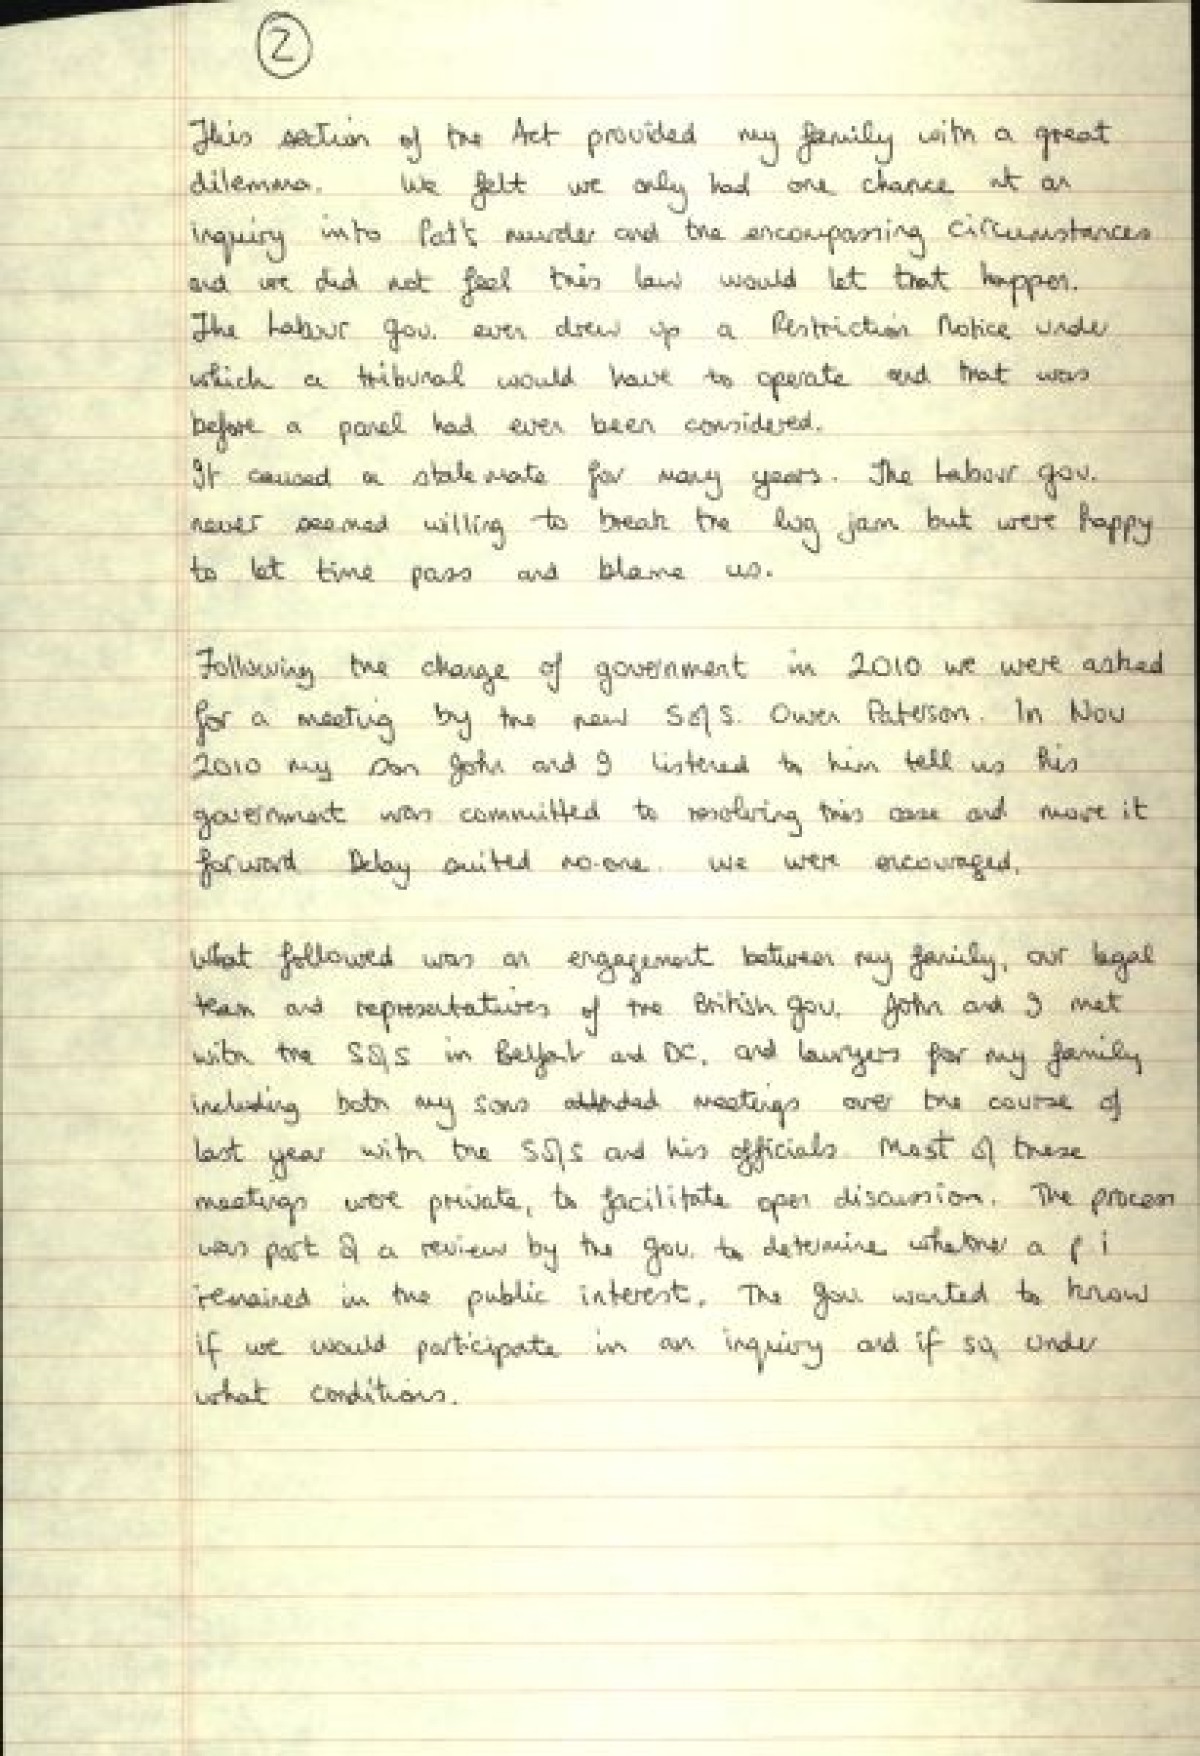 2
This section of the Act provided my family with a great
dilemma. We felt we only had one chance at an
inquiry into Pat's murder and the encompassing circumstances
and we did not feel this law would let that happen.
The Labour gov. even drew up a Restriction Notice under
which a tribunal would have to operate and that was
before a panel had even been considered.
It caused a stalemate for many years. The Labour gov.
never seemed willing to break the log jam but were happy
to let time pass and blame us.
Following the change of government in 2010 we were asked
for a meeting by the new SofS. Owen Paterson. In Nov
2010 my son John and I listened to him tell us his
government was committed to resolving this case and move it
forward Delay suited no-one. We were encouraged.
What followed was an engagement between my family, our legal
team and representatives of the British gov. John and I met
with the SofS in Belfast and DC, and lawyers for my family
including both my sons attended meetings over the course of
last year with the SofS and his officials. Most of these
meetings were private, to facilitate open discussion. The process
was part of a review by the gov. to determine whether a p i
remained in the public interest. The gov. wanted to know
if we would participate in an inquiry and if so, under
what conditions.